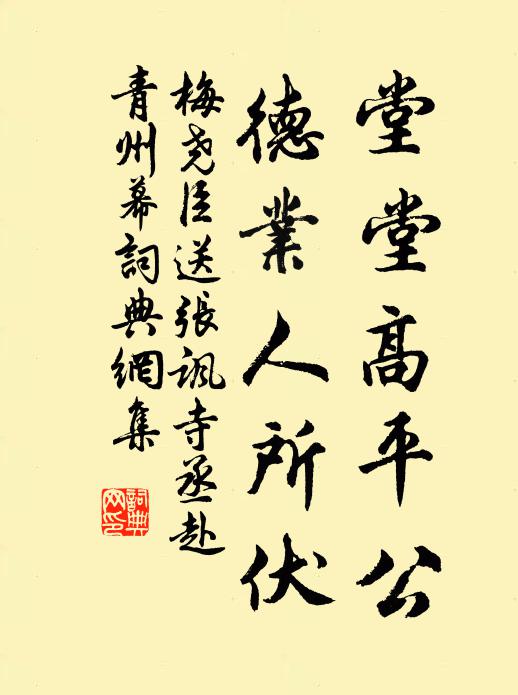 堂堂高平公
德業人所伏
梅堯臣送張諷寺丞赴
青州幕詞典網集
詞典网印